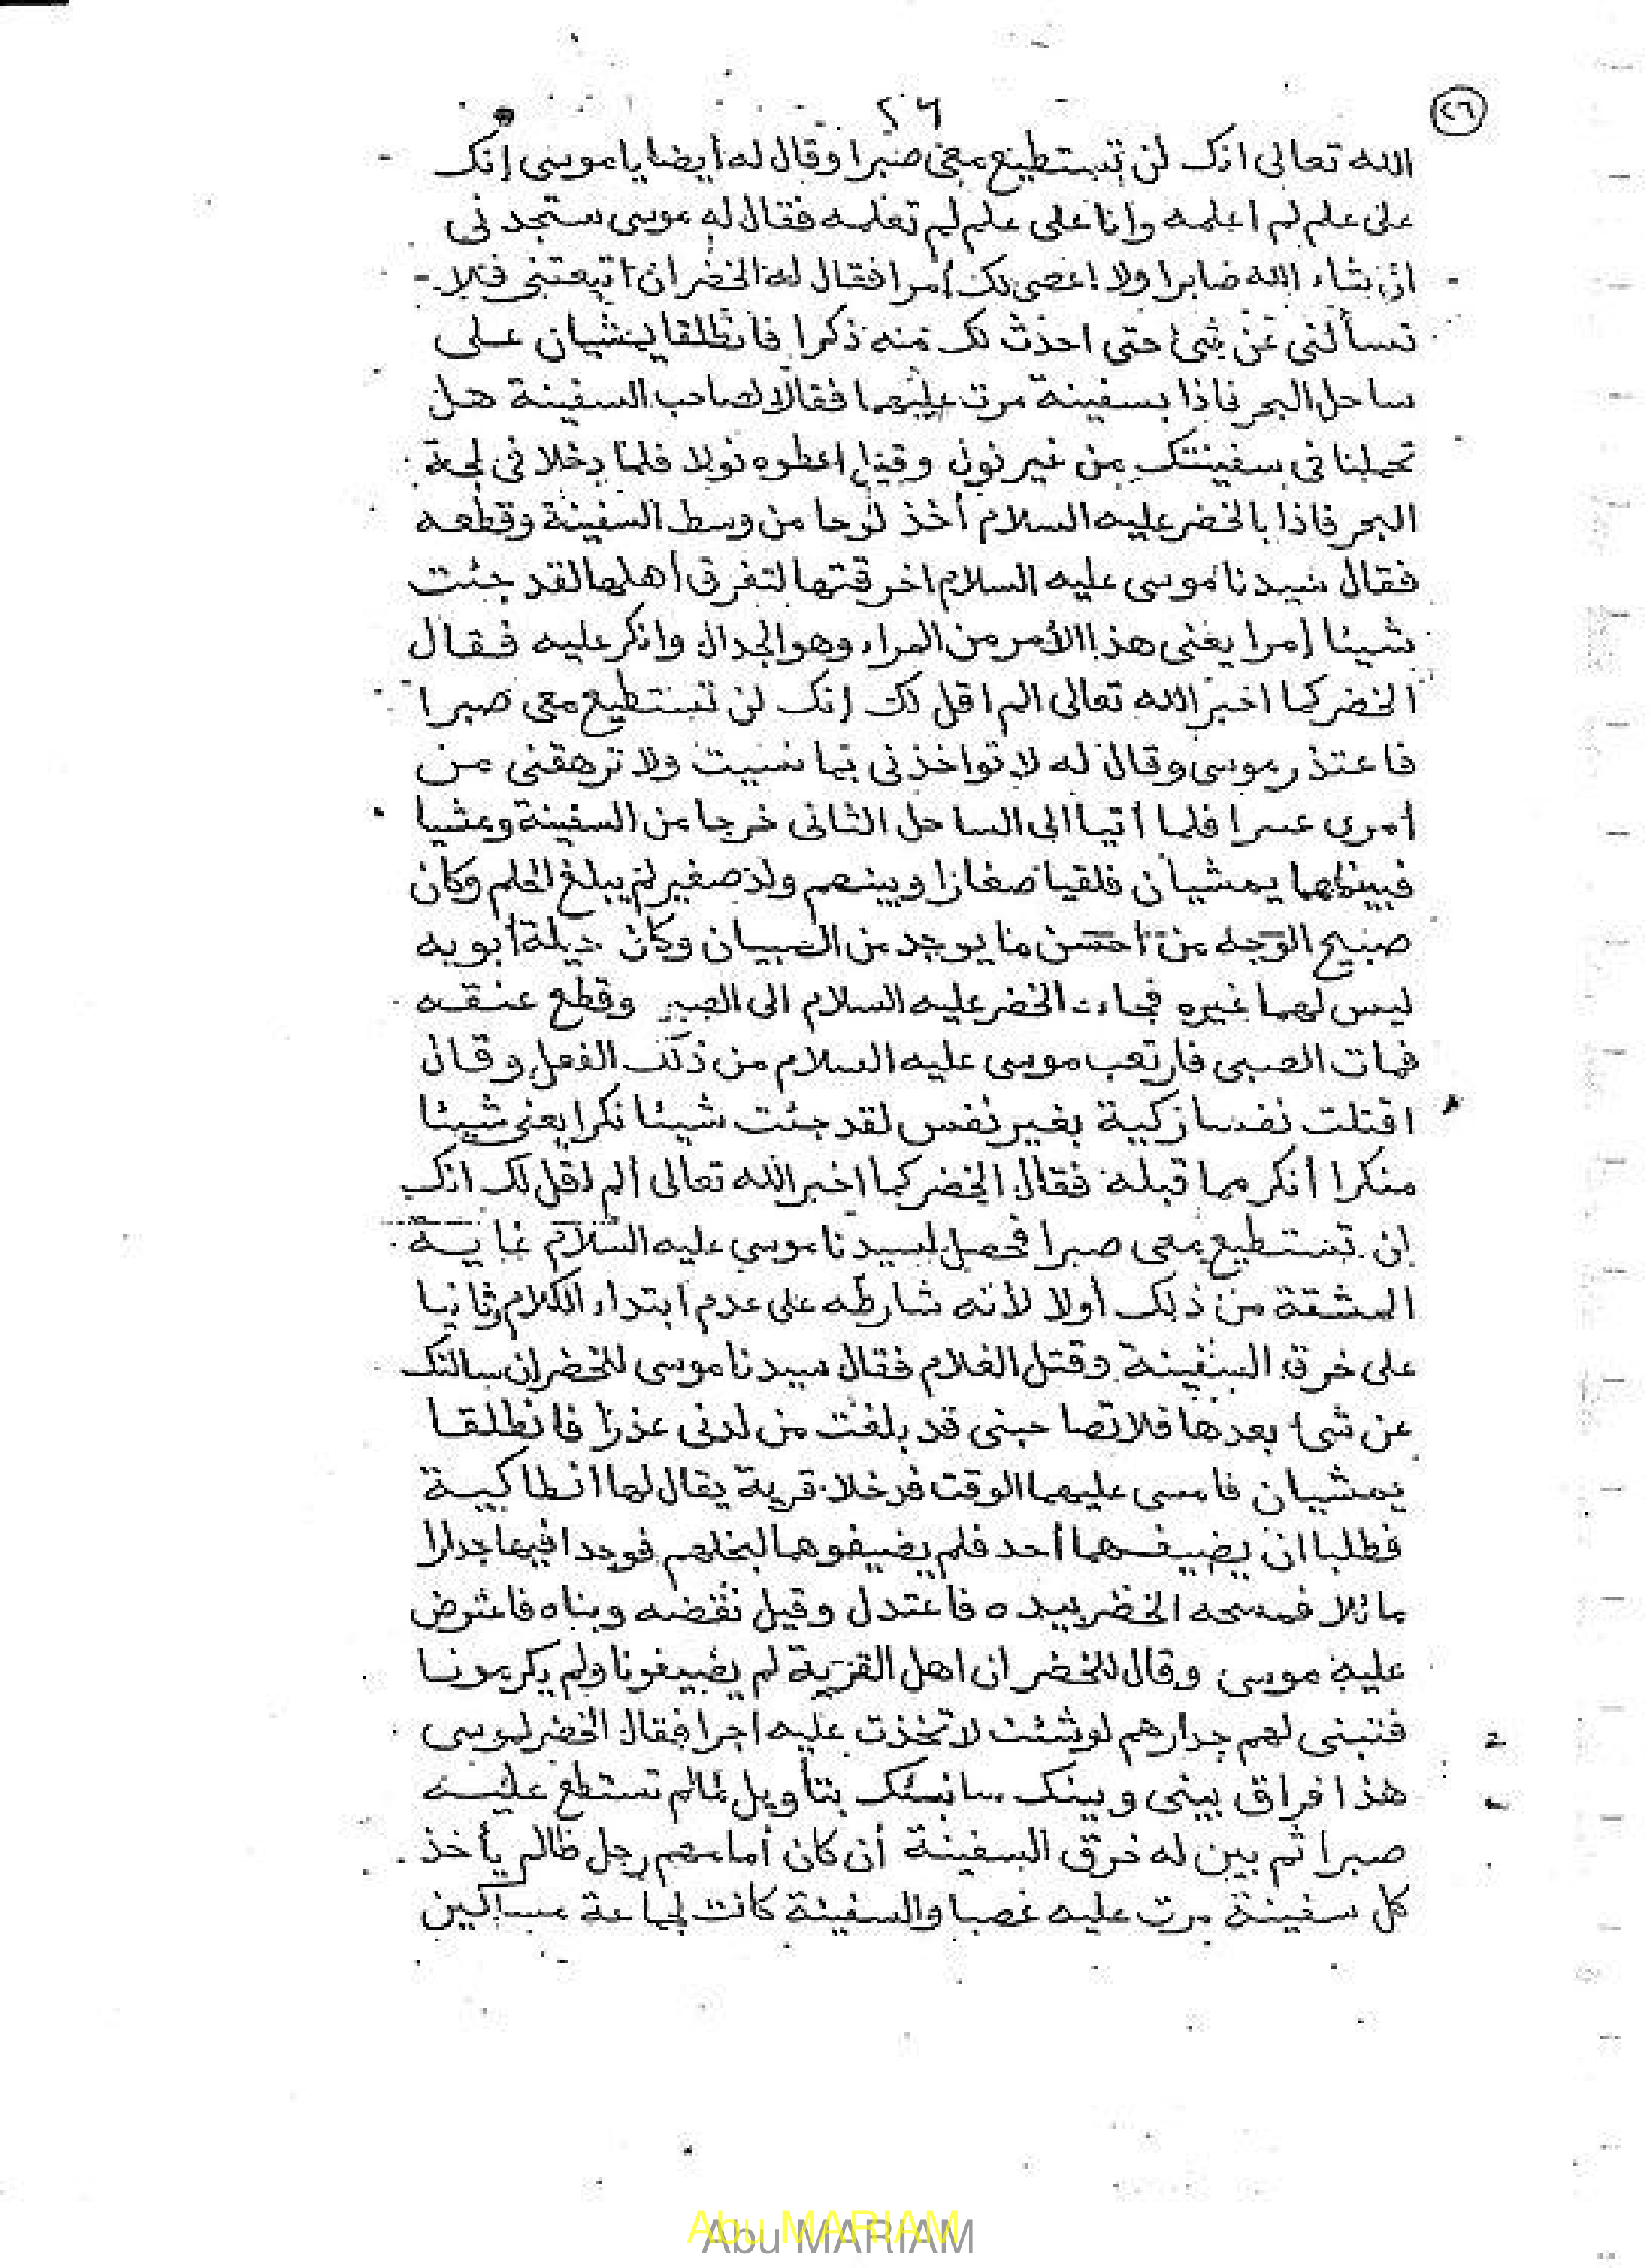 ٢٦
٢٦
الله تعالى انك لن تستطيع معى صبرا وقال له أيضا يا موسى إنك
على علم لم اعلمه وانا على علم لم تعلمه فقال له موسى ستجدنى
ان شاء الله صابرا ولا اعصى لك امرا فقال له الخضر ان اتبعتنى فلا
تسألنى عن شئ حتى احدث لك منه ذكرا فانطلقا يمشيان على
ساحل البحر فاذا بسفينة مرت عليهما فقالا لصاحب السفينة هل
تحملنا فى سفينتك من غير نول وقيل اعطوه نولا فلما دخلا فى لجة
البحر فاذا بالخضر عليه السلام أخذ لوحا من وسط السفينة وقطعه
فقال سيدنا موسى عليه السلام اخرقتها لتغرق أهلها لقد جئت
شيئا إمرا يعنى هذا الأمر من المراء وهو الجدال وانكر عليه فقال
الخضر كما اخبر الله تعالى الم اقل لك إنك لن تستطيع معى صبرا
فاعتذر موسى وقال له لا تواخذنى بما نسيت ولا ترهقنى من
أمرى عسرا فلما أتيا الى الساحل الثانى خرجا من السفينة ومشيا
فبينماهما يمشيان فلقيا صغارا وبينهم ولد صغير لم يبلغ الحلم وكان
صبيح الوجه من احسن ما يوجد من الصبيان وكان حيلة أبويه
ليس لهما غيره فجاء الخضر عليه السلام الى الصبى وقطع عنقه
فمات الصبى فارتعب موسى عليه السلام من ذلك الفعل وقال
اقتلت نفسا زكية بغير نفس لقد جئت شيئا نكرا يعنى شيئا
منكرا أنكر مما قبله فقال الخضر كما اخبر الله تعالى ألم اقل لك انك
لن تستطيع معى صبرا فحصل لسيدنا موسى عليه السلام غاية
المشقة من ذلك أولا لأنه شارطه على عدم ابتداء الكلام وثانيا
على خرق السفينة وقتل الغلام فقال سيدنا موسى للخضر ان سالتك
عن شئ بعدها فلا تصاحبنى قد بلغت من لدنى عذرا فانطلقا
يمشيان فامسى عليهما الوقت فدخلا قرية يقال لها انطاكية
فطلبا ان يضيفهما أحد فلم يضيفوهما لبخلهم فوجدا فيها جدارا
مائلا فمسحه الخضر بيده فاعتدل وقيل نقضه وبناه فاعترض
عليه موسى وقال للخضر ان اهل القرية لم يضيفونا ولم يكرمونا
فتبنى لهم جدارهم لو شئت لاتخذت عليه اجرا فقال الخضر لموسى
هذا فراق بينى وبينك سانبئك بتأويل مالم تستطع عليه
صبرا ثم بين له خرق السفينة أن كان أمامهم رجل ظالم يأخذ
كل سفينة مرت عليه غصبا والسفينة كانت لجماعة مساكين
Abu MARIAM
Abu MARIAM